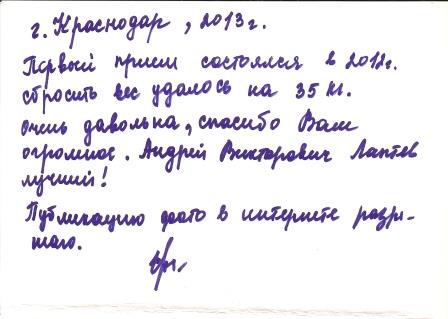 г. Краснодар, 2013 г.
Первый прием состоялся в 2012г.
сбросить вес удалось на 35 кг.
очень давольна, спасибо Вам
огромное. Андрей Викторович Лаптев
лучший!
Публикацию фото в интернете разре-
шаю.